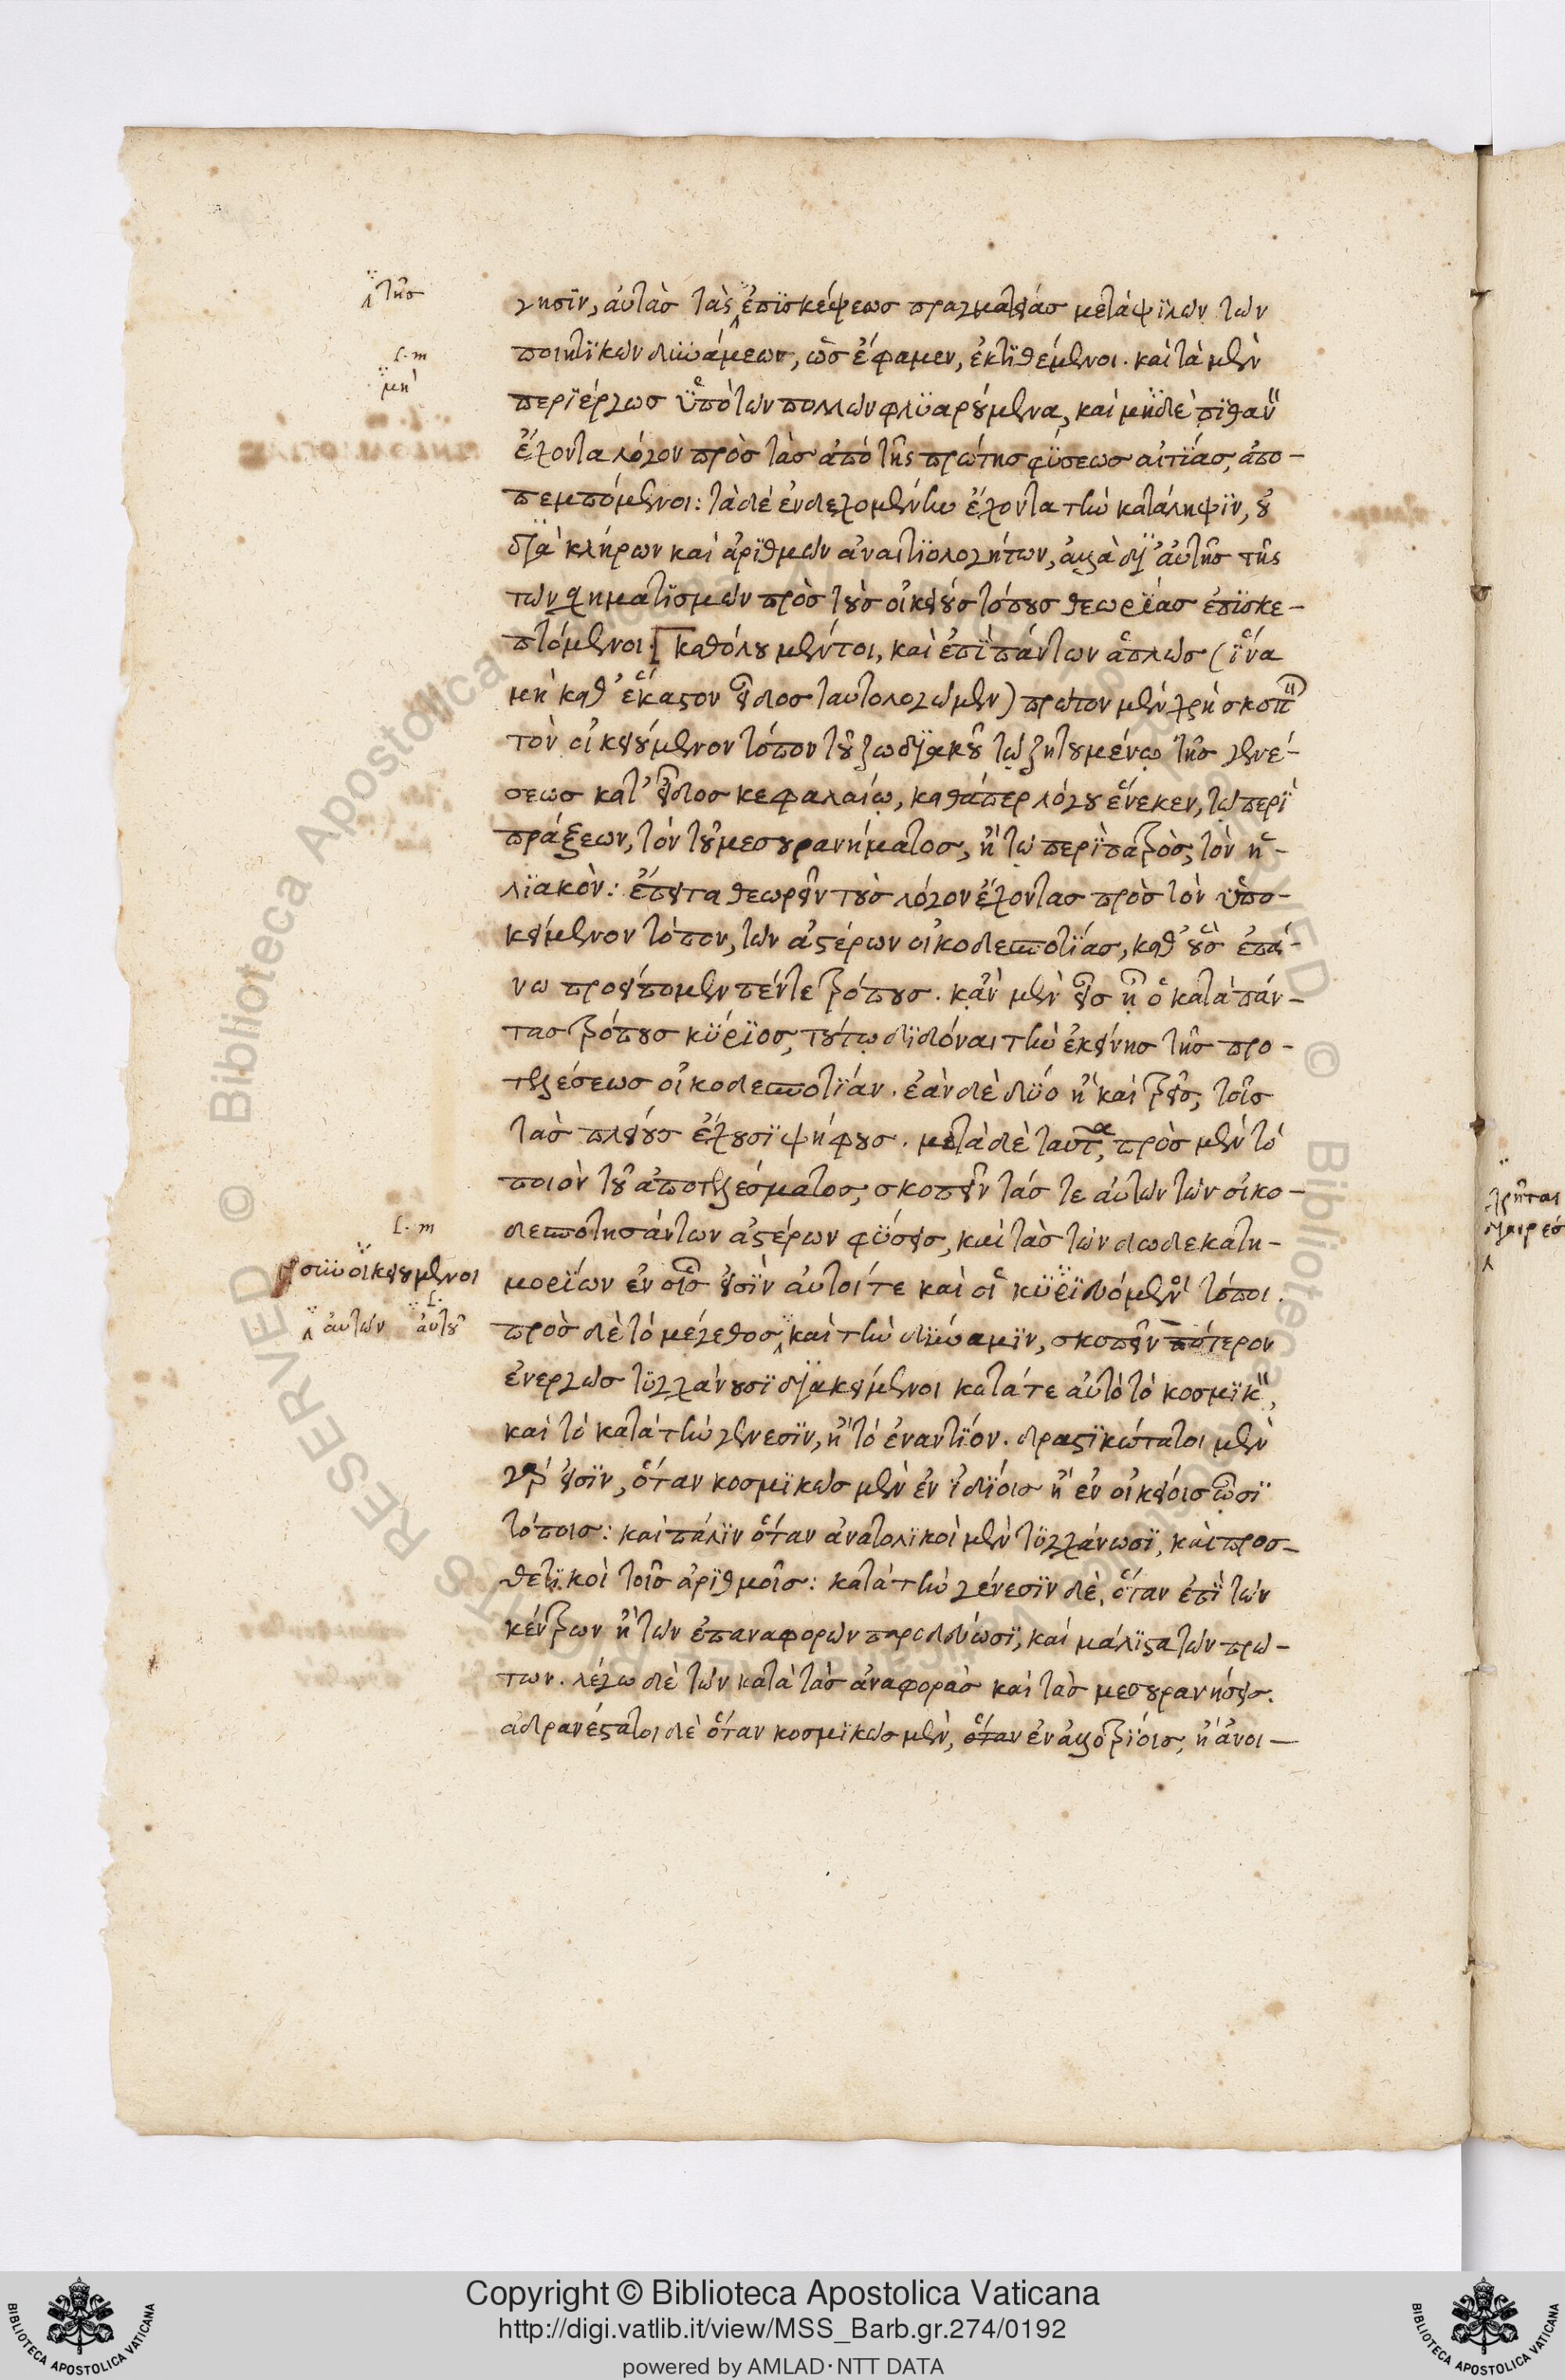 ⁁ τῆσ
γησϊν, αὐτὰσ τὰς ⁁ ἐπϊσκέψεωσ πραγματείάσ μετὰ ψϊλῶν τῶν
ποιητϊκῶν δυνάμεων, ὡσ ἔφαμεν, ἐκτϊθέμενοι. καὶ τὰ μὲν
μὴ
περϊέργωσ ὑπὸ τῶν πολλῶν φλϋαρούμενα, καὶ μηδὲ πϊθανὸν
ἔχοντα λόγον πρὸσ τὰσ ἀπὸ τῆς πρώτησ φϋσεωσ αἰτϊάσ, ἀπο-
πεμπόμενοι: τὰ δὲ ἐνδεχομένην ἔχοντα τὴν κατάληψϊν, οὐ
δϊὰ κλήρων καὶ ἀρϊθμῶν ἀναιτϊολογήτων, ἀλλὰ δϊ' ἀυτῆσ τῆς
τῶν σχηματϊσμῶν πρὸσ τοὺσ οἰκείουσ τόπουσ θεωρϊάσ ἐπϊσκε-
πτόμενοι. [καθόλου μέντοι, καὶ ἐπϊ πάντων ἁπλῶσ (ἵνα
μὴ καθ' ἕκαστον εἶδοσ ταυτολογῶμεν) πρῶτον μὲν χρὴ σκοπεῖν
τὸν οἰκειούμενον τόπον τοῦ ζωδϊακοῦ τῷ ζητουμένῳ τῆσ γενέ-
σεωσ κατ' εἶδοσ κεφαλαίῳ, καθάπερ λόγου ἕνεκεν, τῷ περϊ
πράξεων, τὸν τοῦ μεσουρανήματοσ, ἢ τῷ περϊ πατρὸσ, τὸν ἡ-
λϊακὸν: ἔπειτα θεωρεῖν τοὺσ λόγον ἔχοντασ πρὸσ τὸν ὑπο-
κείμενον τόπον, τῶν ἀστέρων οἰκοδεσποτϊάσ, καθ' οὓσ ἐπά-
νω προείπομεν πέντε τρόπουσ. κἂν μὲν εἷσ ᾖ ὁ κατὰ πάν-
τασ τρόπουσ κϋρϊοσ, τούτῳ δϊδόναι τὴν ἐκείνησ τῆσ προ-
τελέσεωσ οἰκοδεσποτϊάν. ἐὰν δὲ δϋο ἢ καὶ τρεῖσ, τοῖσ
τὰσ πλείουσ ἔχουσϊ ψήφουσ. μετὰ δὲ ταῦτα, πρὸσ μὲν τὸ
ποιὸν τοῦ ἀποτελέσματοσ, σκοπεῖν τάσ τε ἀυτῶν τῶν οἰκο-
δεσποτησάντων ἀστέρων φϋσεισ, καὶ τὰσ τῶν δωδεκατη-
συνοικειουμενοι
μορϊων ἐν οἷσ εἰσϊν ἀυτοί τε καὶ οἱ κϋρϊευόμενοι τόποι.
⁁ αὐτῶν αὐτοῦ
πρὸσ δὲ τὸ μέγεθοσ ⁁ καὶ τὴν δϋναμϊν, σκοπεῖν πότερον
ἐνεργῶσ τϋγχάνουσϊ δϊακείμενοι κατά τε αὐτὸ τὸ κοσμϊκὸν,
καὶ τὸ κατὰ τὴν γένεσϊν, ἢ τὸ ἐναντϊόν. δραστϊκώτατοι μὲν
γάρ εἰσϊν, ὅταν κοσμϊκῶσ μὲν ἐν ἰδϊόισ ἢ ἐν οἰκείοισ ὦσϊ
τόποισ: καὶ πάλϊν ὅταν ἀνατολϊκοὶ μὲν τϋγχάνωσϊ, καὶ προσ-
θετϊκοὶ τοῖσ ἀρϊθμοῖσ: κατὰ τὴν γένεσϊν δὲ, ὅταν ἐπϊ τῶν
κέντρων ἢ τῶν ἐπαναφορῶν παροδεύωσϊ, καὶ μάλϊστα τῶν πρώ-
των. λέγω δὲ τῶν κατὰ τὰσ ἀναφορὰσ καὶ τὰσ μεσουρανήσεισ.
ἀδρανέστατοι δὲ ὅταν κοσμϊκῶσ μὲν, ὅταν ἐν ἀλλοτρϊόισ, ἢ ἀνοι-
Copyright © Biblioteca Apostolica Vaticana
http://digi.vatlib.it/view/MSS_Barb.gr.274/0192
powered by AMLAD·NTT DATA
BIBLIOTECA APOSTOLICA VATICANA
BIBLIOTECA APOSTOLICA VATICANA